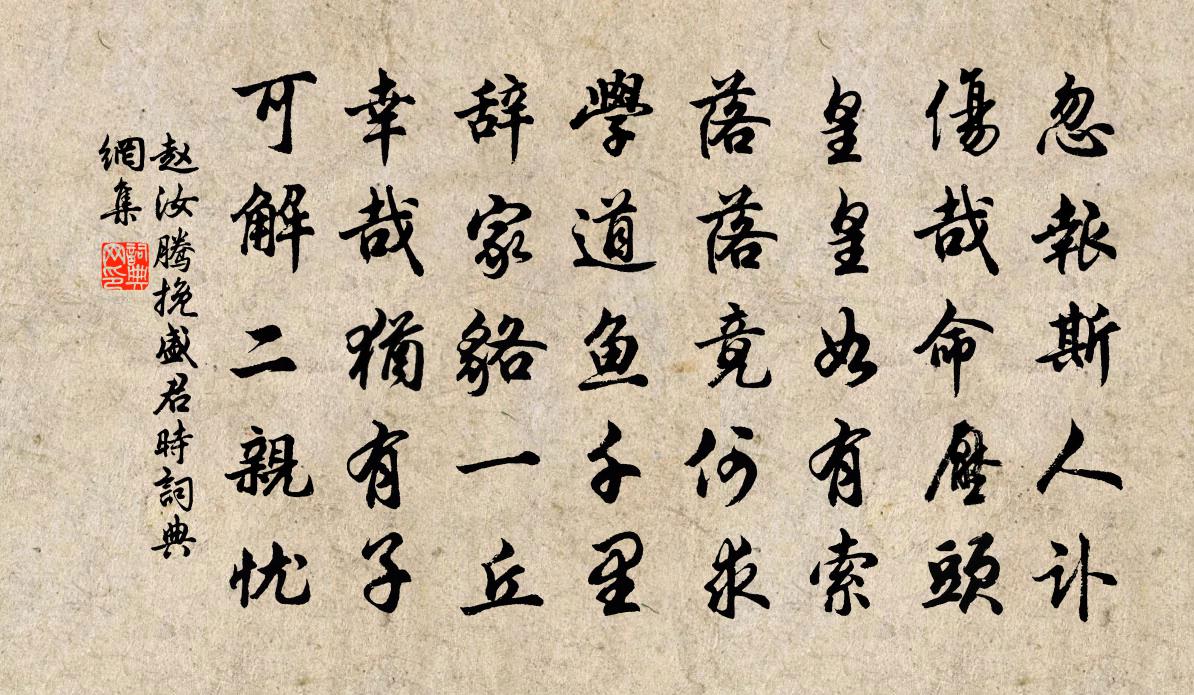 忽報斯人訃
傷哉命壓頭
皇皇如有索
落落竟何求
學道魚千里
辞家貉一丘
幸哉猶有子
可解二親忧
赵汝腾挽盛君時詞典
網集
詞典
网印